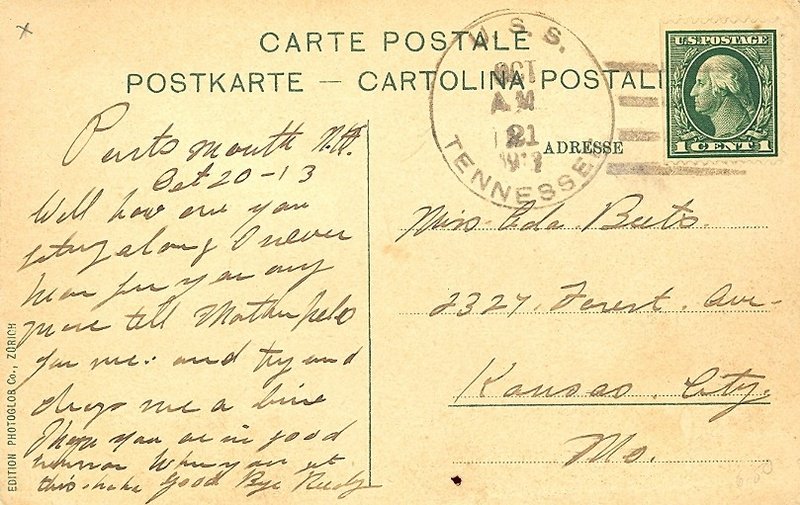 CARTE POSTALE
POSTKARTE — CARTOLINA POSTALE
U.S.S.
OCT
A.M.
21
TENNESSEE
U.S. POSTAGE
1 CENT 1
ADRESSE
Ports mouth N.H.
Oct 20-13
Well how are you
along I never
hear from you any
more till Mother
for me. and try and
drop me a line
I hope you are in good
humor when you get
this. Good Bye
Miss Ada Bets.
2327. Forest. Ave-
Kansas. City.
Mo.
EDITION PHOTOGLOB Co., ZÜRICH